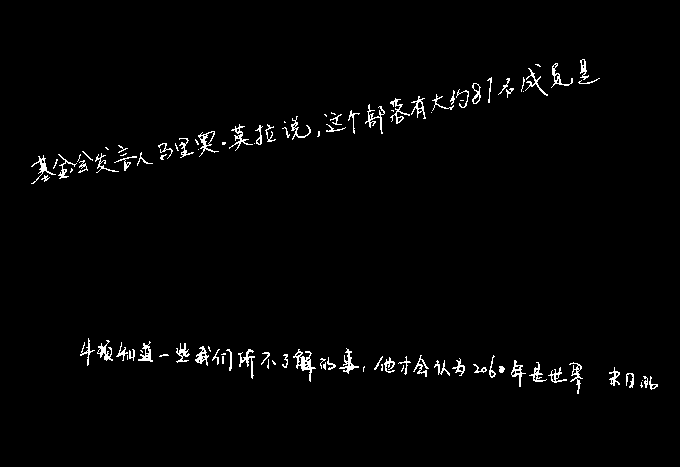 基金会发言人马里奥·莫拉说,这个部落有大约87名成员是
牛顿知道一些我们所不了解的事,他才会认为2060年是世界 末日的